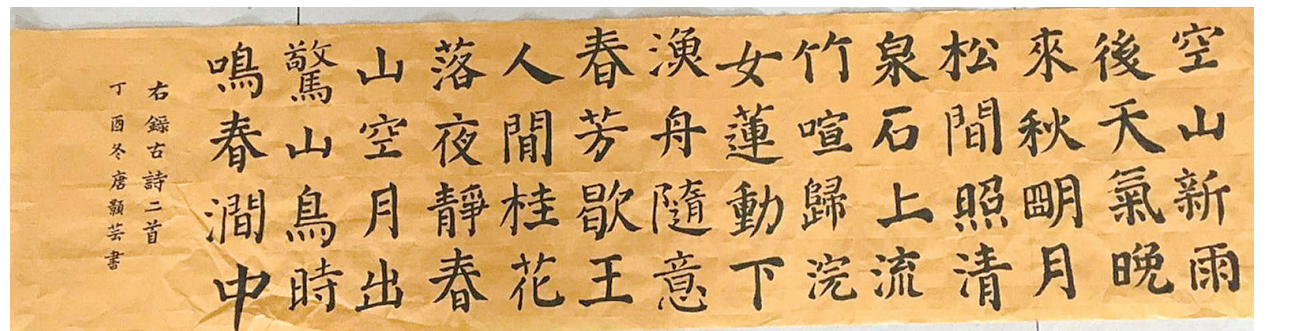 空山新雨
後天氣晚
來秋朙月
松間照清
泉石上流
竹喧歸浣
女蓮動下
漁舟隨意
春芳歇王
人間桂花
落夜靜春
山空月出
驚山鳥時
鳴春澗中
右錄古詩二首
丁酉冬唐顥芸書